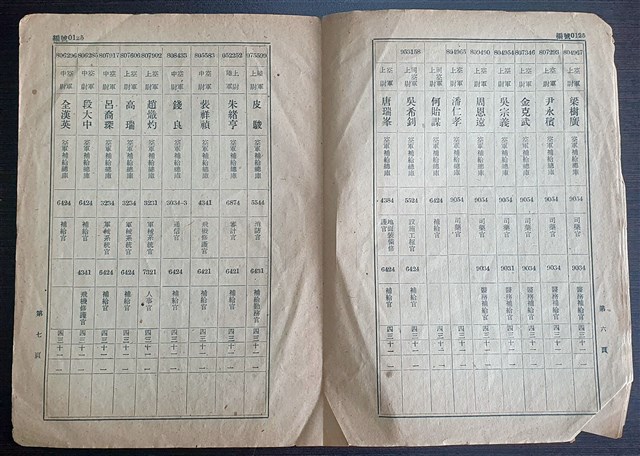 編號0125
804967 空軍上尉 梁樹廣 空軍補給總庫 9054 司藥官 9054 醫務補給官 四三 十一 一
807293 空軍上尉 尹永積 空軍補給總庫 9054 司藥官 9054 醫務補給官 四三 十一 一
837346 空軍上尉 金克武 空軍補給總庫 9054 司藥官 9054 醫務補給官 四三 十一 一
804954 空軍上尉 吳宗義 空軍補給總庫 9054 司藥官 9031 醫務補給官 四三 十一 一
空軍上尉 周恩 空軍補給總庫 9054 司藥官 9054 醫務補給官 四三 十一 一
804965 空軍上尉 潘仁孝 空軍補給總庫 9054 司藥官 四三 十一 一
上尉 何貽謀 空軍補給總庫 6424 補給官 四三 十一 一
903158 上尉 吳希釗 空軍補給總庫 5524 設施工程官 6424 補給官 四三 十一 一
空軍上尉 唐瑞峯 空軍補給總庫 4384 6424 補給官 四三 十一 一
第六頁
編號0125
975599 上尉 皮駿 空軍補給總庫 5544 消防官 6431 補給勤務官 四三 十一 一
952252 上尉 朱緒亨 空軍補給總庫 6874 審計官 6421 補給官 四三 十一 一
805583 空軍中尉 裴祥禎 空軍補給總庫 4341 飛機修護官 6421 補給官 四三 十一 一
808435 空軍中尉 錢良 空軍補給總庫 3034-3 通信官 6424 補給官 四三 十一 一
807992 空軍上尉 趙熾灼 空軍補給總庫 3231 軍械系統官 7321 人事官 四三 十一 一
807806 空軍上尉 高瑞 空軍補給總庫 3234 軍械系統官 6424 補給官 四三 十一 一
807917 空軍中尉 呂裔琛 空軍補給總庫 3234 軍械系統官 6424 補給官 四三 十一 一
806285 空軍中尉 段大中 空軍補給總庫 6424 補給官 4341 飛機修護官 四三 十一 一
806296 空軍中尉 全漢英 空軍補給總庫 6424 補給官 四三 十一 一
第七頁